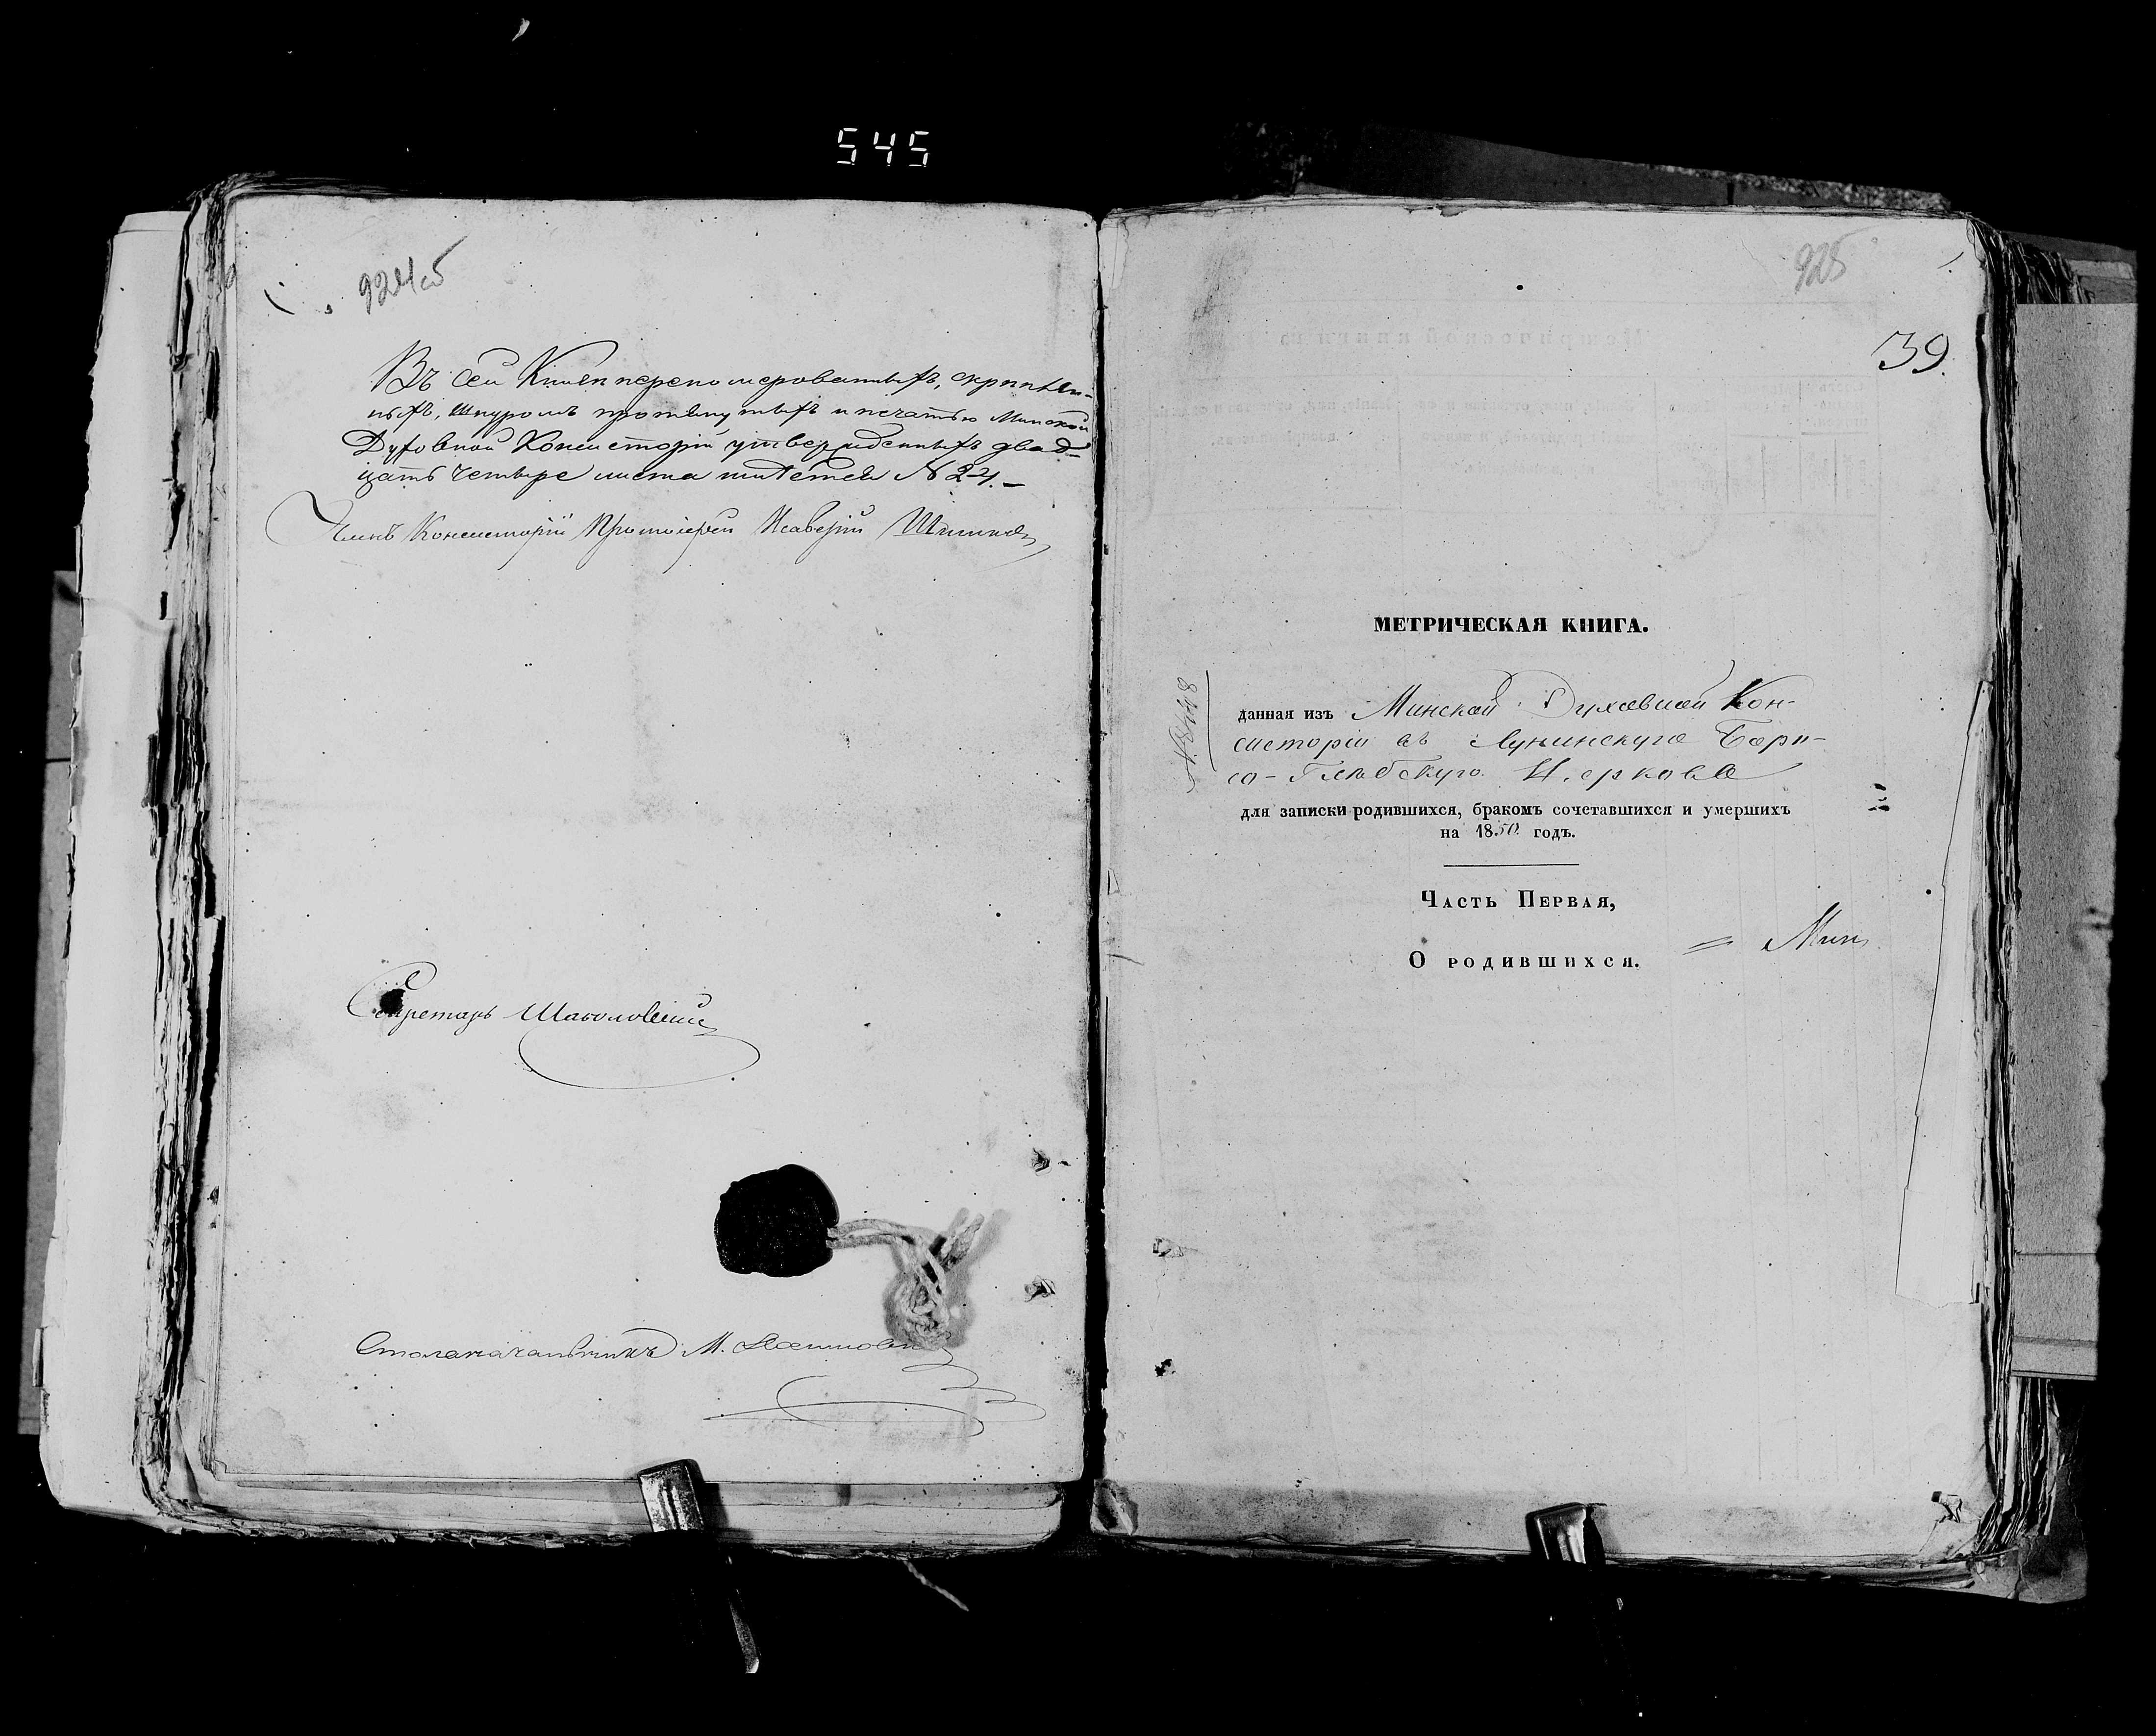 545
924об
Въ сей Книгѣ перенумерованныхъ, скрѣплен-
ныхъ, шнуромъ протянутыхъ и печатью Минской
Духовной Консисторіи утвержденныхъ двад-
цать четыре листа итетей № 24.
Членъ Консисторіи Протоіерей Ксаверій
Секретарь
Столоначальникъ М.
925
39.
МЕТРИЧЕСКАЯ КНИГА.
данная изъ Минской Духовной Кон-
систоріи въ Лунинскую Бори-
со-Глѣбскую Церковь
для записки родившихся, бракомъ сочетавшихся и умершихъ
на 1850 годъ.
Часть Первая,
О родившихся.
= Мин